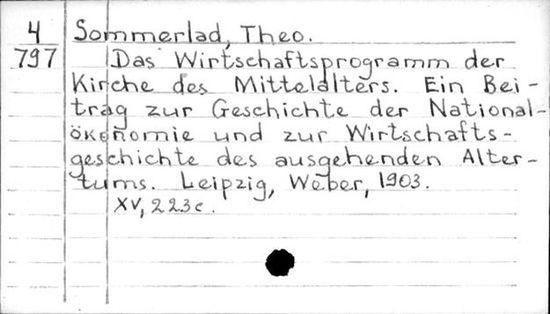 4 Sommerlad, Theo.
797 Das Wirtschaftsprogramm der
Kirche des Mittelalters. Ein Bei-
trag zur Geschichte der National-
ökonomie und zur Wirtschafts-
geschichte des ausgehenden Alter-
tums. Leipzig, Weber, 1903.
XV, 223 c.